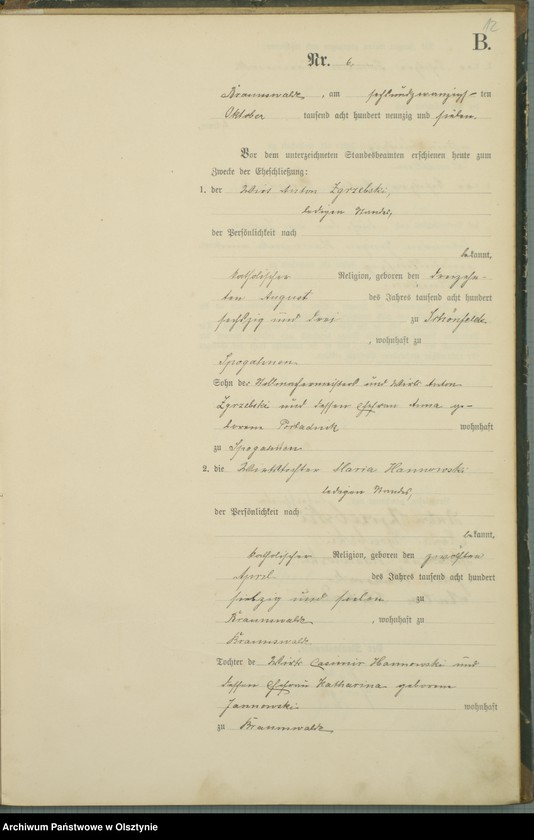 12
B.
Nr. 6.
Braunswalde, am sechsundzwanzigs-ten
Oktober tausend acht hundert neunzig und sieben.
Vor dem unterzeichneten Standesbeamten erschienen heute zum
Zwecke der Eheschließung:
1. der Wirt Anton Zgrzebski,
ledigen Standes,
der Persönlichkeit nach
bekannt,
katholischer Religion, geboren den dreizehn-
ten August des Jahres tausend acht hundert
sechzig und drei zu Schönfelde
, wohnhaft zu
Spogahnen
Sohn des und Wirts Anton
Zgrzebski und dessen Ehefrau Anna ge-
borene wohnhaft
zu Spogahnen
2. die Wirtstochter Maria Hannowski
ledigen Standes,
der Persönlichkeit nach
bekannt,
katholischer Religion, geboren den zwölften
April des Jahres tausend acht hundert
siebzig und sieben zu
Braunswalde, wohnhaft zu
Braunswalde
Tochter de Wirts Casimir Hannowski und
dessen Ehefrau Katharina geborene
Jannowski wohnhaft
zu Braunswalde
Archiwum Państwowe w Olsztynie